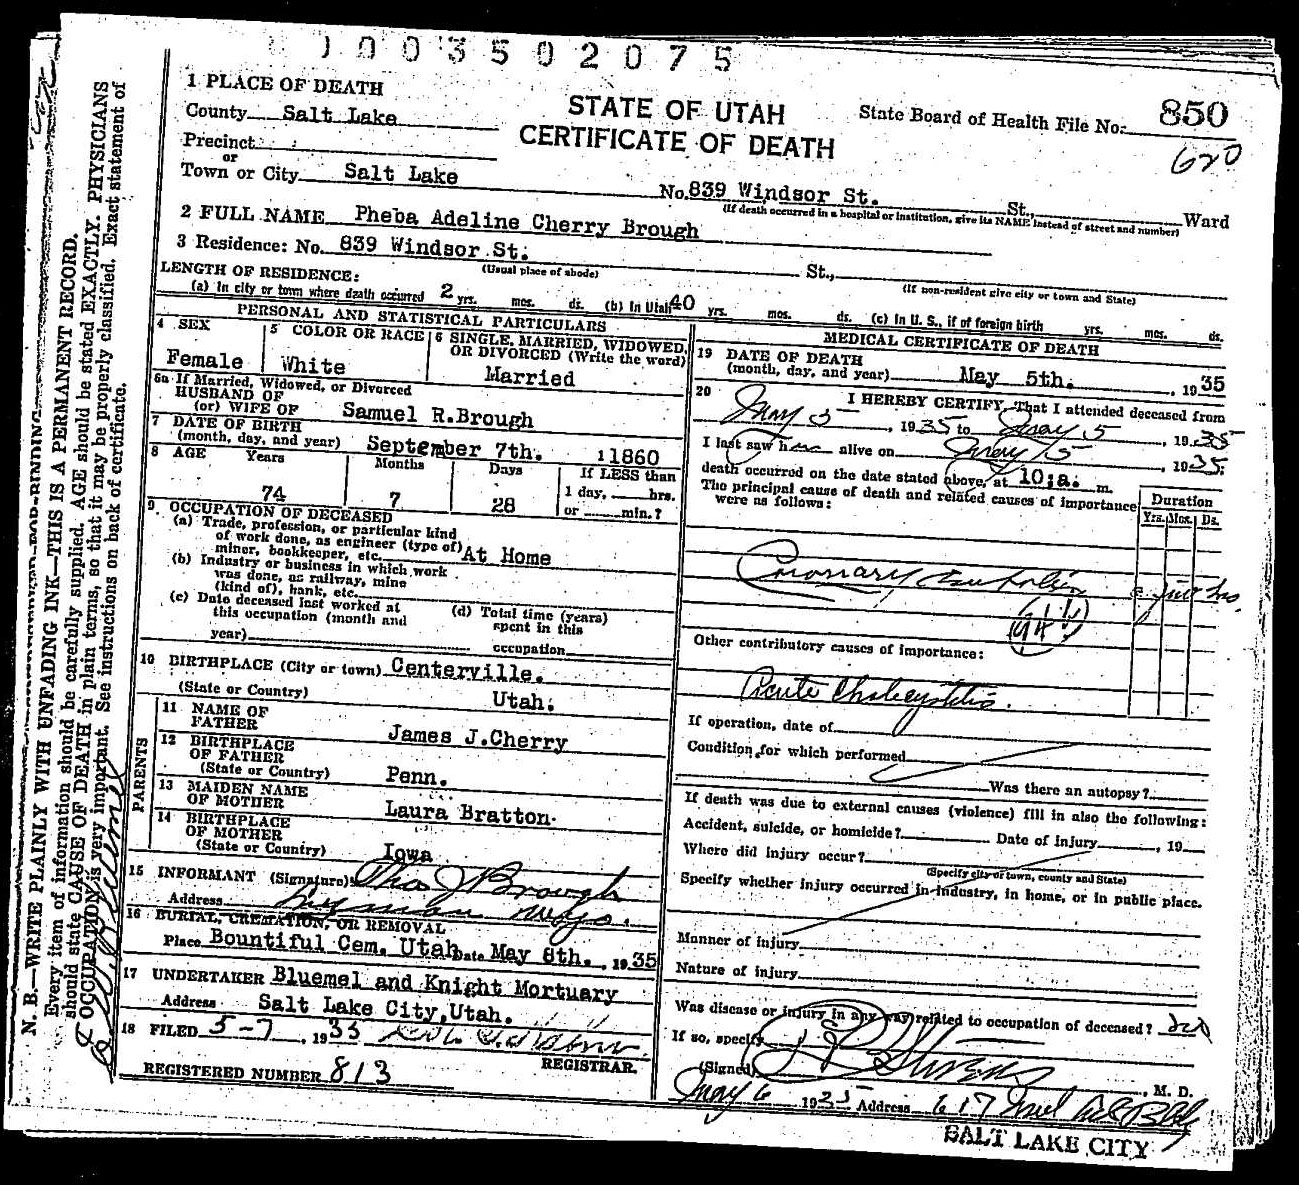 1003502075
1 PLACE OF DEATH
County Salt Lake
STATE OF UTAH
CERTIFICATE OF DEATH
State Board of Health File No. 850
620
Precinct
or
Town or City Salt Lake No. 839 Windsor St. St., Ward
(If death occurred in a hospital or institution, give its NAME instead of street and number)
2 FULL NAME Pheba Adeline Cherry Brough
3 Residence: No. 839 Windsor St. St.,
(Usual place of abode) (If non-resident give city or town and State)
LENGTH OF RESIDENCE:
(a) In city or town where death occurred 2 yrs. mos. ds. (b) In Utah 40 yrs. mos. ds. (c) In U. S., if of foreign birth yrs. mos. ds.
PERSONAL AND STATISTICAL PARTICULARS
4 SEX
Female
5 COLOR OR RACE
White
6 SINGLE, MARRIED, WIDOWED,
OR DIVORCED (Write the word)
Married
6a If Married, Widowed, or Divorced
HUSBAND OF
(or) WIFE OF Samuel R.Brough
7 DATE OF BIRTH
(month, day, and year) September 7th. 1860
8 AGE Years Months Days If LESS than
74 7 28 1 day, hrs.
or min.?
9. OCCUPATION OF DECEASED
(a) Trade, profession, or particular kind
of work done, as engineer (type of)
miner, bookkeeper, etc. At Home
(b) Industry or business in which work
was done, as railway, mine
(kind of), bank, etc.
(c) Date deceased last worked at
this occupation (month and
year)
(d) Total time (years)
spent in this
occupation
10 BIRTHPLACE (City or town) Centerville.
(State or Country) Utah.
PARENTS
11 NAME OF
FATHER James J.Cherry
12 BIRTHPLACE
OF FATHER
(State or Country) Penn.
13 MAIDEN NAME
OF MOTHER Laura Bratton
14 BIRTHPLACE
OF MOTHER
(State or Country) Iowa
15 INFORMANT (Signature) Thos J Brough
Address Lyman Wyo.
16 BURIAL, CREMATION, OR REMOVAL
Place Bountiful Cem. Utah Date May 8th. , 1935
17 UNDERTAKER Bluemel and Knight Mortuary
Address Salt Lake City,Utah.
18 FILED 5-7, 1935
REGISTRAR.
REGISTERED NUMBER 813
MEDICAL CERTIFICATE OF DEATH
19 DATE OF DEATH
(month, day, and year) May 5th. , 1935
20 I HEREBY CERTIFY, That I attended deceased from
May 5 , 1935 to May 5 , 1935
I last saw her alive on May 5 , 1935
death occurred on the date stated above, at 10;a. m.
The principal cause of death and related causes of importance
were as follows:
Duration
Yrs. Mos. Ds.
Coronary
Other contributory causes of importance:
Acute Cholecystitis.
If operation, date of
Condition for which performed
Was there an autopsy?
If death was due to external causes (violence) fill in also the following:
Accident, suicide, or homicide? Date of injury , 19
Where did injury occur?
(Specify city or town, county and State)
Specify whether injury occurred in industry, in home, or in public place.
Manner of injury
Nature of injury
Was disease or injury in any way related to occupation of deceased? no
If so, specify
(Signed) , M. D.
May 6 1935 Address 617
SALT LAKE CITY
N. B.—WRITE PLAINLY WITH UNFADING INK—THIS IS A PERMANENT RECORD.
Every item of information should be carefully supplied. AGE should be stated EXACTLY. PHYSICIANS
should state CAUSE OF DEATH in plain terms, so that it may be properly classified. Exact statement of
OCCUPATION is very important. See instructions on back of certificate.